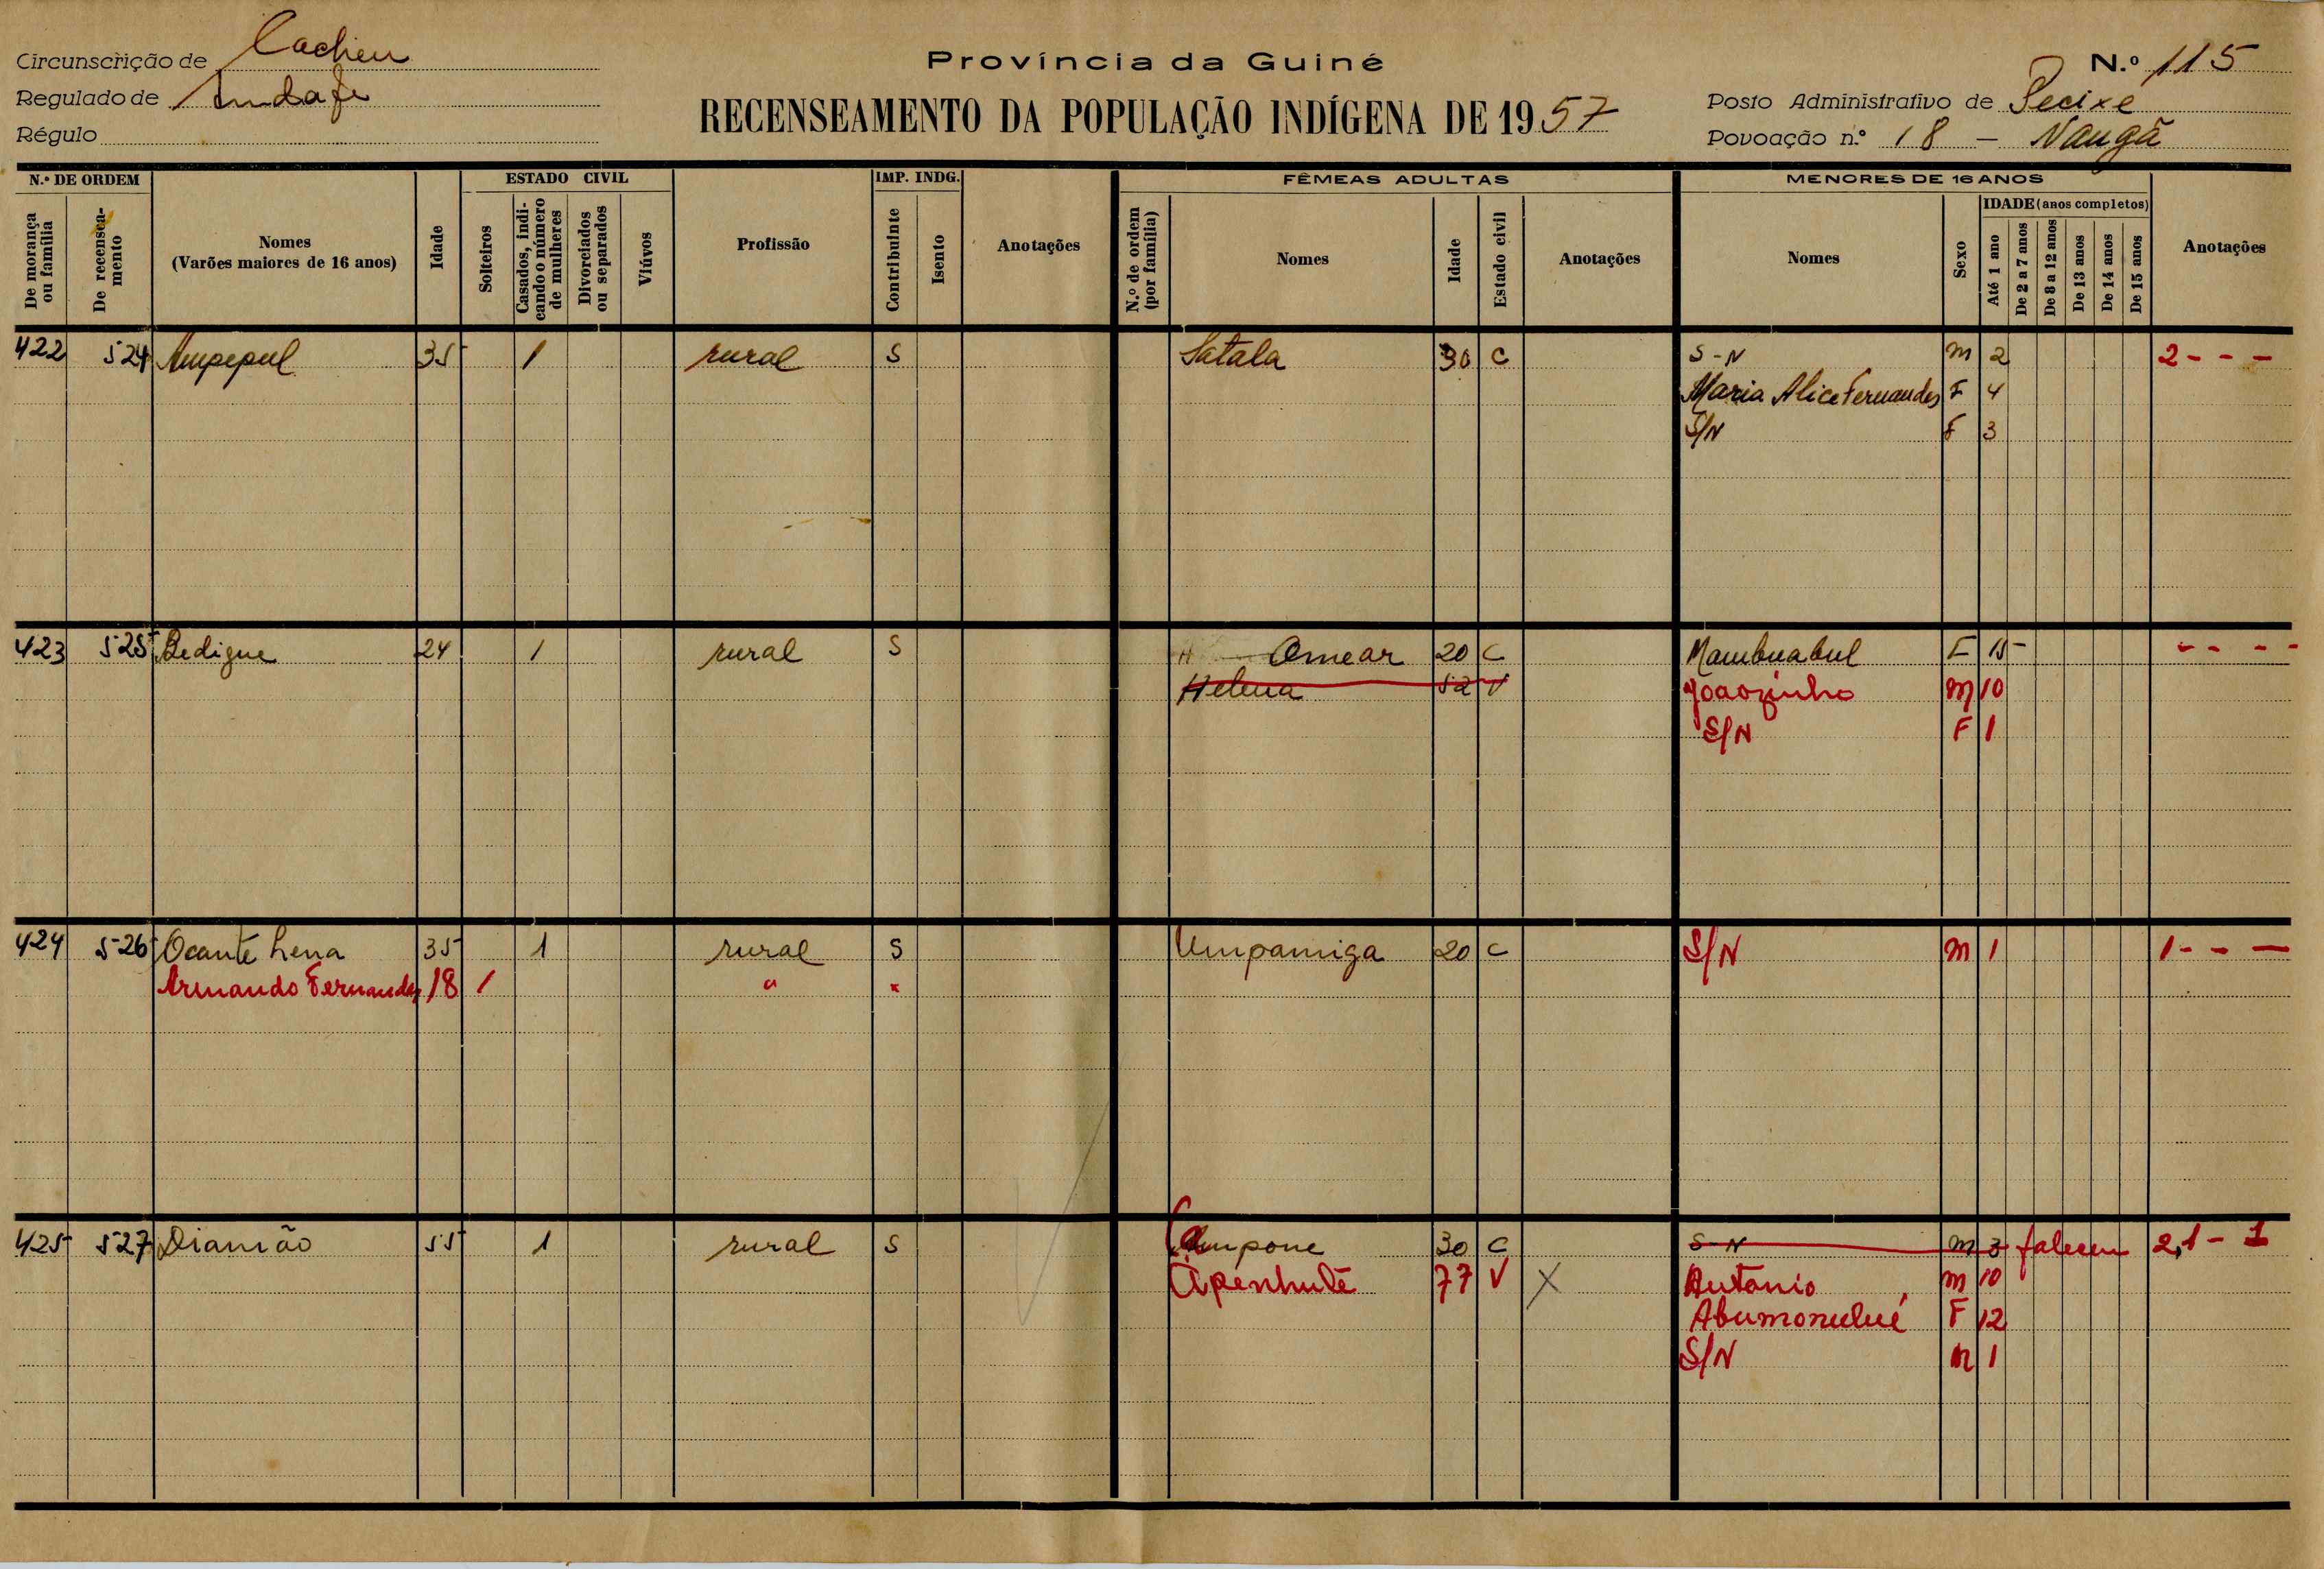 Circunscrição de Cacheu
Regulado de Andafe
Régulo
Província da Guiné
RECENSEAMENTO DA POPULAÇÃO INDÍGENA DE 1957
N.º 115
Posto Administrativo de Pecixe
Povoação n.º 18 - Naugã
N.º DE ORDEM
De morança ou família
De recenseamento
Nomes
(Varões maiores de 16 anos)
Idade
ESTADO CIVIL
Solteiros
Casados, indicando o número de mulheres
Divorciados ou separados
Viúvos
Profissão
IMP. INDG.
Contribuinte
Isento
Anotações
FÊMEAS ADULTAS
N.º de ordem (por família)
Nomes
Idade
Estado civil
Anotações
MENORES DE 16 ANOS
Nomes
Sexo
IDADE (anos completos)
Até 1 ano
De 2 a 7 anos
De 8 a 12 anos
De 13 anos
De 14 anos
De 15 anos
Anotações
422 524 Ampepul 35 1 rural S Satala 30 C S-N M 2 2 - - -
Maria Alice Fernandes F 4
S/N F 3
423 525 Bedigue 24 1 rural S Omear 20 C Mambuabul F 15 - - - -
Helena 52 V Joaozinho M 10
S/N F 1
424 526 Ocante Lena 35 1 rural S Umpamiga 20 C S/N M 1 1 - - -
Armando Fernandes 18 1 " "
425 527 Diamão 55 1 rural S Ampone 30 C S-N M 3 faleceu 2,1 - 1
Apenhulé 77 V X Antonio M 10
Abumonulué F 12
S/N M 1